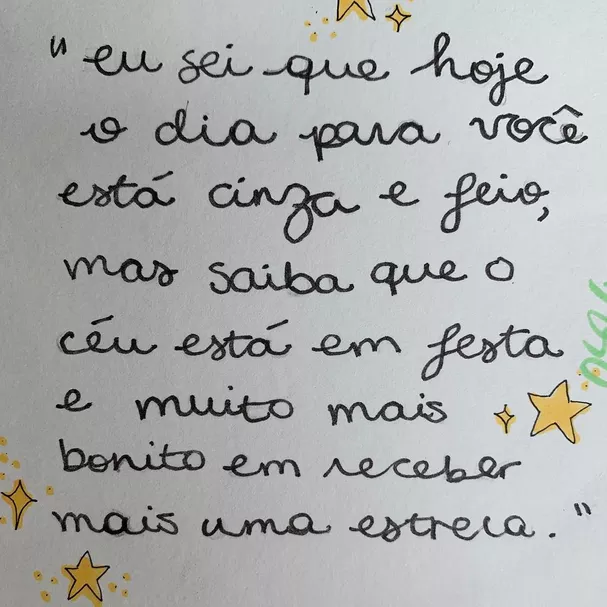 "eu sei que hoje
o dia para você
está cinza e feio,
mas saiba que o
céu está em festa
e muito mais
bonito em receber
mais uma estreca."